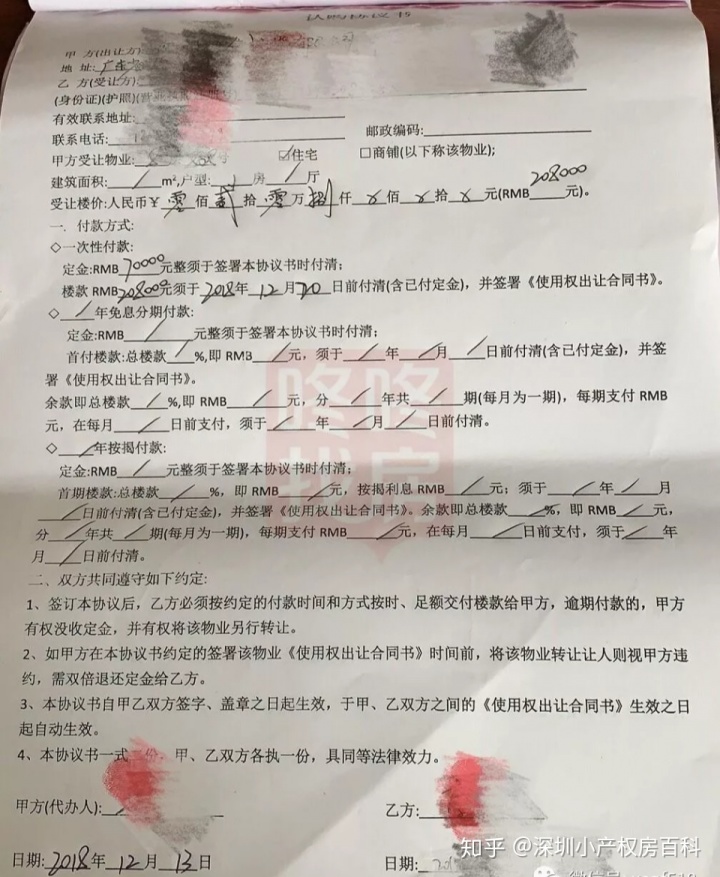 认购协议书
甲 方(出让方)
地 址:广东
乙 方(受让方):
(身份证)(护照)
有效联系地址:
联系电话: 邮政编码:
甲方受让物业: ☑住宅 □商铺(以下称该物业);
建筑面积: / m²,户型: 房 / 厅
受让楼价:人民币￥ 零 佰 贰 拾 零 万 捌 仟 x 佰 x 拾 x 元(RMB 208000 元)。
一. 付款方式:
◇一次性付款:
定金:RMB 70000 元整须于签署本协议书时付清;
楼款 RMB 208000 元须于 2018 年 12 月 20 日前付清(含已付定金)，并签署《使用权出让合同书》。
◇ / 年免息分期付款:
定金:RMB / 元整须于签署本协议书时付清;
首付楼款:总楼款 / %,即 RMB / 元，须于 / 年 / 月 / 日前付清(含已付定金)，并签
署《使用权出让合同书》。
余款即总楼款 / %,即 RMB / 元，分 / 年共 / 期(每月为一期)，每期支付 RMB
元，在每月 / 日前支付，须于 / 年 / 月 / 日前付清。
◇ / 年按揭付款:
定金:RMB / 元整须于签署本协议书时付清;
首期楼款:总楼款 / %，即 RMB / 元，按揭利息 RMB / 元；须于 / 年 / 月
/ 日前付清(含已付定金)，并签署《使用权出让合同书》。余款即总楼款 / %，即 RMB / 元，
分 / 年共 / 期(每月为一期)，每期支付 RMB / 元，在每月 / 日前支付，须于 / 年
月 / 日前付清。
二、双方共同遵守如下约定:
1、签订本协议后，乙方必须按约定的付款时间和方式按时、足额交付楼款给甲方，逾期付款的，甲方
有权没收定金，并有权将该物业另行转让。
2、如甲方在本协议书约定的签署该物业《使用权出让合同书》时间前，将该物业转让让人则视甲方违
约，需双倍退还定金给乙方。
3、本协议书自甲乙双方签字、盖章之日起生效，于甲、乙双方之间的《使用权出让合同书》生效之日
起自动生效。
4、本协议书一式 份，甲、乙双方各执一份，具同等法律效力。
甲方(代办人): 乙方:
日期: 2018 年 12 月 13 日 日期:
咚咚找房
知乎 @深圳小产权房百科
微信号